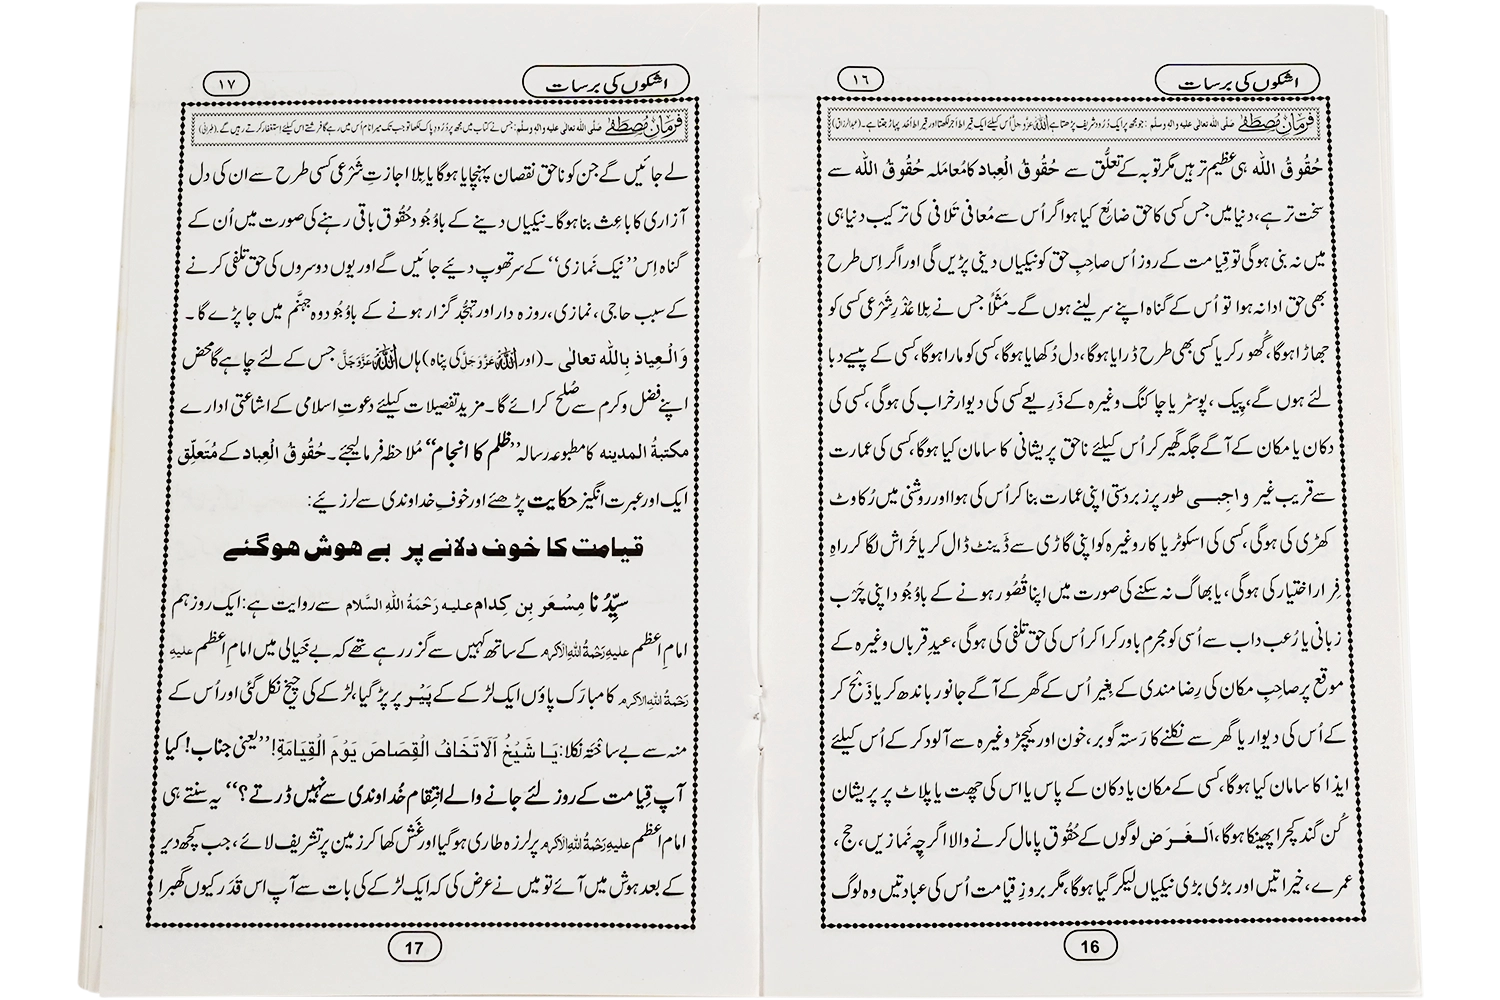 اشکوں کی برسات
١٦
فرمانِ مصطفٰے صلی اللہ تعالیٰ علیہ والہ وسلم : جو مجھ پر ایک دُرُود شریف پڑھتا ہے اللہ عزوجل اُس کیلئے ایک قیراط اجر لکھتا اور قیراط اُحُد پہاڑ جتنا ہے۔ (عبدالرزاق)
حُقُوقُ اللہ ہی عظیم تر ہیں مگر توبہ کے تعلُّق سے حُقُوقُ الْعِباد کا مُعامَلہ حُقُوقُ اللہ سے
سخت تر ہے، دنیا میں جس کسی کا حق ضائع کیا ہو اگر اُس سے مُعافی تَلافی کی ترکیب دنیا ہی
میں نہ بنی ہوگی تو قِیامت کے روز اُس صاحِبِ حق کو نیکیاں دینی پڑیں گی اور اگر اِس طرح
بھی حق ادا نہ ہوا تو اُس کے گناہ اپنے سر لینے ہوں گے۔ مَثَلًا جس نے بِلا عُذْرِ شَرْعی کسی کو
جھاڑا ہوگا، گُھور کر یا کسی بھی طرح ڈرایا ہوگا، دل دُکھایا ہوگا، کسی کو مارا ہوگا، کسی کے پیسے دبا
لئے ہوں گے، پیک، پوسٹر یا چاکنگ وغیرہ کے ذَرِیعے کسی کی دیوار خراب کی ہوگی، کسی کی
دکان یا مکان کے آگے جگہ گھیر کر اُس کیلئے ناحق پریشانی کا سامان کیا ہوگا، کسی کی عمارت
سے قریب غیر واجبی طور پر زبردستی اپنی عمارت بنا کر اُس کی ہوا اور روشنی میں رُکاوٹ
کھڑی کی ہوگی، کسی کی اسکوٹر یا کار وغیرہ کو اپنی گاڑی سے ڈینٹ ڈال کر یا خَراش لگا کر راہِ
فِرار اختیار کی ہوگی، یا بھاگ نہ سکنے کی صورت میں اپنا قُصُور ہونے کے باوُجُود اپنی چَرْب
زبانی یا رُعب داب سے اُسی کو مجرم باور کرا کر اُس کی حق تلفی کی ہوگی، عیدِ قرباں وغیرہ کے
موقع پر صاحِبِ مکان کی رِضا مندی کے بِغیر اُس کے گھر کے آگے جانور باندھ کر یا ذَبْح کر
کے اُس کی دیوار یا گھر سے نکلنے کا رَستہ گوبر، خون اور کیچڑ وغیرہ سے آلود کر کے اُس کیلئے
ایذا کا سامان کیا ہوگا، کسی کے مکان یا دکان کے پاس یا اس کی چھت یا پلاٹ پر پریشان
کُن گند کچرا پھینکا ہوگا، اَلْغَرَض لوگوں کے حُقُوق پامال کرنے والا اگرچِہ نَمازیں، حج،
عمرے، خیراتیں اور بڑی بڑی نیکیاں لیکر گیا ہوگا، مگر بروزِ قِیامت اُس کی عبادتیں وہ لوگ
16
اشکوں کی برسات
١٧
فرمانِ مصطفٰے صلی اللہ تعالیٰ علیہ والہ وسلم : جس نے کتاب میں مجھ پر دُرُود پاک لکھا تو جب تک میرا نام اُس میں رہے گا فرشتے اس کیلئے استغفار کرتے رہیں گے۔ (طبرانی)
لے جائیں گے جن کو ناحق نقصان پہنچایا ہوگا یا بِلا اجازتِ شَرْعی کسی طرح سے ان کی دل
آزاری کا باعِث بنا ہوگا۔ نیکیاں دینے کے باوُجُود حُقُوق باقی رہنے کی صورت میں اُن کے
گناہ اِس ’’نیک نَمازی‘‘ کے سر تھوپ دیئے جائیں گے اور یوں دوسروں کی حق تلفی کرنے
کے سبب حاجی، نمازی، روزہ دار اور تہجُّد گزار ہونے کے باوُجُود وہ جہنَّم میں جا پڑے گا۔
وَالْعِیاذُ بِاللہِ تعالٰی ۔ (اور اللہ عَزَّوَجَلَّ کی پناہ) ہاں اللہ عَزَّوَجَلَّ جس کے لئے چاہے گا محض
اپنے فضل و کرم سے صُلْح کرائے گا۔ مزید تفصیلات کیلئے دعوتِ اسلامی کے اشاعتی ادارے
مکتبۃُ المدینہ کا مطبوعہ رسالہ ’’ظلم کا انجام‘‘ مُلاحَظہ فرما لیجئے۔ حُقُوقُ الْعِباد کے مُتَعلِّق
ایک اور عبرت انگیز حکایت پڑھئے اور خوفِ خداوندی سے لرزئیے:
قیامت کا خوف دلانے پر بے ہوش ہوگئے
سیِّدُنا مِسْعَر بِن کِدام علیہ رَحْمَۃُ اللہِ السَّلام سے روایت ہے: ایک روز ہم
امامِ اعظم علیہ رَحْمَۃُ اللہِ الاکرم کے ساتھ کہیں سے گزر رہے تھے کہ بے خیالی میں امامِ اعظم علیہ
رَحْمَۃُ اللہِ الاکرم کا مبارَک پاؤں ایک لڑکے کے پَیْر پر پڑ گیا، لڑکے کی چیخ نکل گئی اور اُس کے
منہ سے بے ساختہ نکلا: یَا شَیْخُ اَلَاتَخَافُ الْقِصَاصَ یَوْمَ الْقِیَامَۃِ! ’’یعنی جناب! کیا
آپ قِیامت کے روز لئے جانے والے انتِقامِ خُداوندی سے نہیں ڈرتے؟‘‘ یہ سنتے ہی
امامِ اعظم علیہ رَحْمَۃُ اللہِ الاکرم پر لرزہ طاری ہوگیا اور غَش کھا کر زمین پر تشریف لائے، جب کچھ دیر
کے بعد ہوش میں آئے تو میں نے عرض کی کہ ایک لڑکے کی بات سے آپ اس قَدَر کیوں گھبرا
17